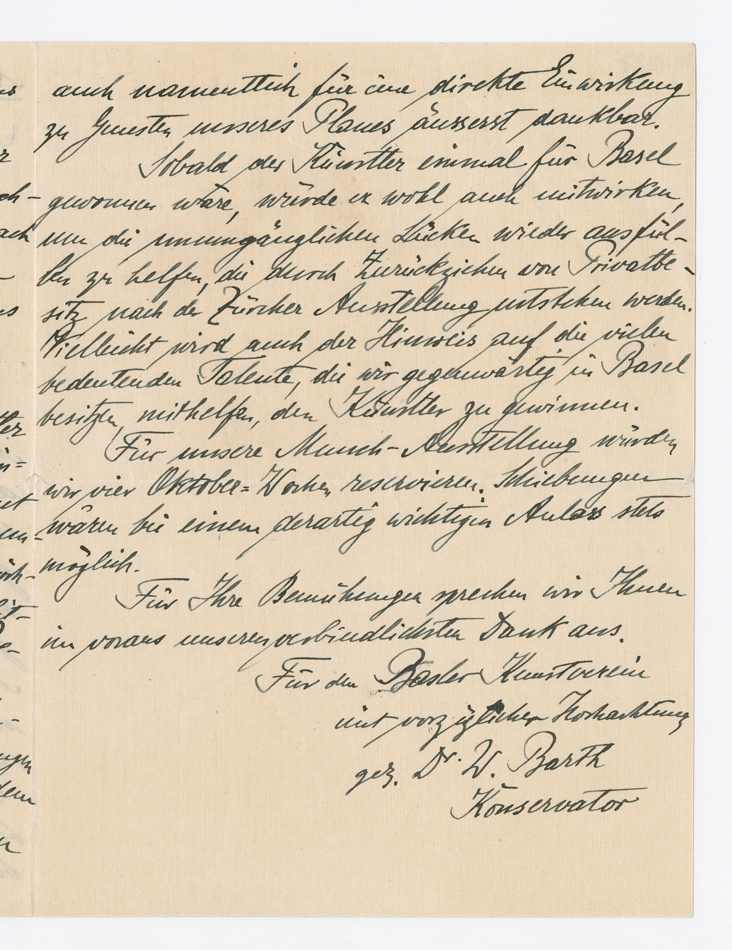 auch namentlich für eine direkte Einwirkung
zu Gunsten unseres Planes äusserst dankbar.
Sobald der Künstler einmal für Basel
gewonnen wäre, würde er wohl auch mitwirken,
um die unumgänglichen Lücken wieder ausfül-
len zu helfen, die durch Zurückziehen von Privatbe-
sitz nach der Zürcher Ausstellung entstehen werden.
Vielleicht wird auch der Hinweis auf die vielen
bedeutenden Talente, die wir gegenwärtig in Basel
besitzen, mithelfen, den Künstler zu gewinnen.
Für unsere Munch-Ausstellung würden
wir vier Oktober-Wochen reservieren. Schiebungen
wären bei einem derartig wichtigen Anlass stets
möglich.
Für Ihre Bemühungen sprechen wir Ihnen
im voraus unseren verbindlichsten Dank aus.
Für den Basler Kunstverein
mit vorzüglicher Hochachtung
gez. Dr. W. Barth
Konservator